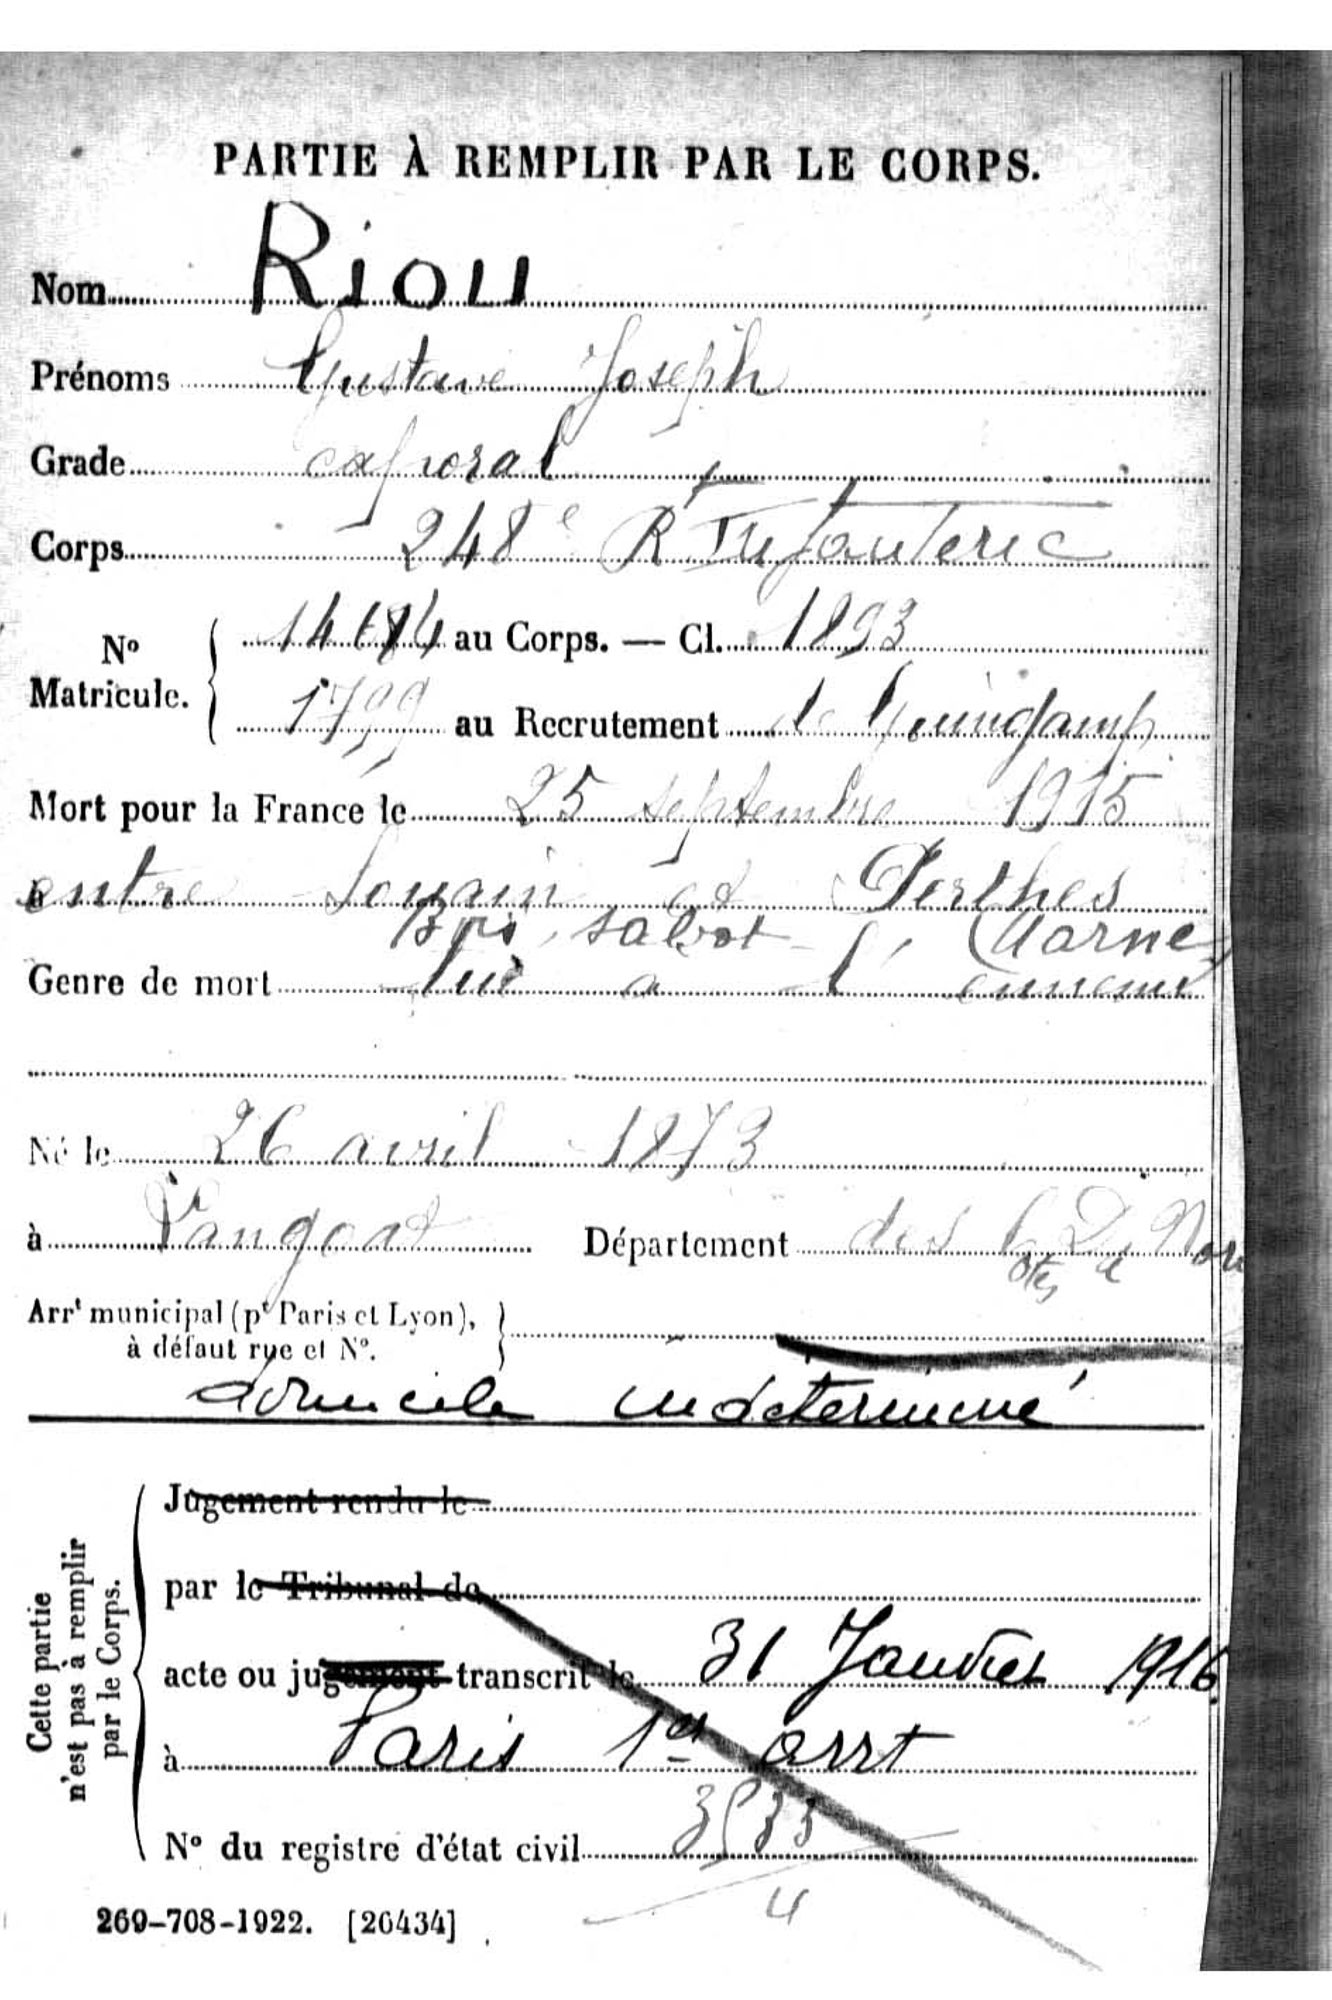 PARTIE À REMPLIR PAR LE CORPS.
Nom Riou
Prénoms Gustave Joseph
Grade caporal
Corps 248e R Infanterie
No Matricule. 14684 au Corps. — Cl. 1893
1799 au Recrutement de Guingamp
Mort pour la France le 25 septembre 1915
à entre Souain et Perthes
Bois sabot (Marne)
Genre de mort tué a l'ennemi
Né le 26 avril 1873
à Langoat Département des Côtes Du Nord
Arrt municipal (pr Paris et Lyon),
à défaut rue et No.
domicile indéterminé
Cette partie n'est pas à remplir par le Corps.
Jugement rendu le
par le Tribunal de
acte ou jugement transcrit le 31 Janvier 1916
à Paris 1er arrt
No du registre d'état civil
4
269-708-1922. [26434]